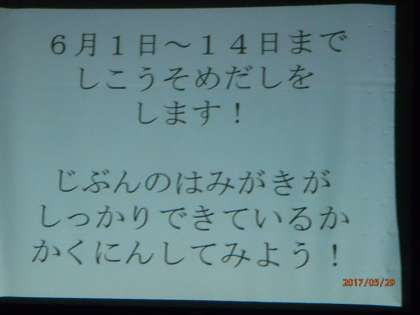 ６月１日～１４日まで
しこうそめだしを
します！
じぶんのはみがきが
しっかりできているか
かくにんしてみよう！
2017/05/29